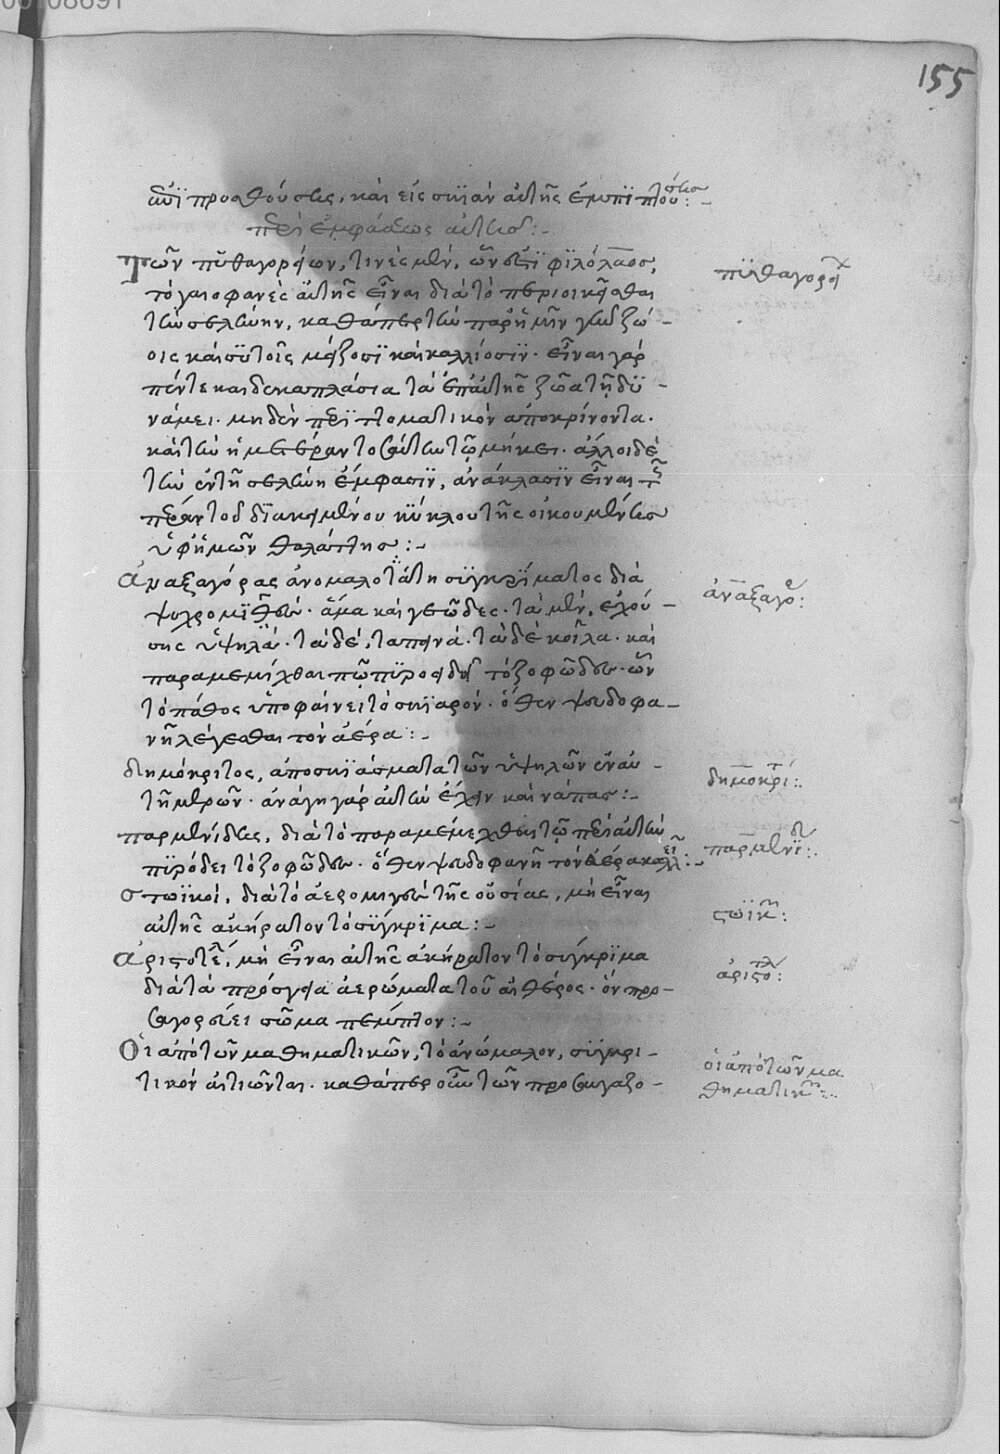 155
αὐτῇ προσθούσης, καὶ εἰς σκιὰν αὐτῆς ἐμπιπτούσης:-
περὶ ἐμφάσεως αὐτῆς:-
τῶν πυθαγορείων, τινὲς μὲν, ὧν ἐστι φιλόλαος,
πυθαγορεί
τὸ γαιοφανὲς αὐτῆς εἶναι διὰ τὸ περιοικεῖσθαι
τὴν σελήνην, καθάπερ τὴν παρ' ἡμῖν γῆν ζώ-
οις καὶ φυτοῖς μείζοσι καὶ καλλίοσιν. εἶναι γὰρ
πεντεκαιδεκαπλάσια τὰ ἐπ' αὐτῆς ζῶα τῇ δυ-
νάμει. μηδὲν περιττοματικὸν ἀποκρίνοντα.
καὶ τὴν ἡμέραν τοσαύτην τῷ μήκει. ἄλλοι δὲ
τὴν ἐν τῇ σελήνῃ ἔμφασιν, ἀνάκλασιν εἶναι τῆς
πέραν τοῦ διακεκαυμένου κύκλου τῆς οἰκουμένης
ὑφ' ἡμῶν θαλάττης:-
ἀναξαγόρας ἀνομαλότητι συγκρίματος διὰ
ἀναξαγό:
ψυχρομιγὲς. ἅμα καὶ γεῶδες. τὰ μὲν, ἐχού-
σης ὑψηλὰ. τὰ δὲ, ταπεινά. τὰ δὲ κοῖλα. καὶ
παραμεμίχθαι τῷ πυροειδεῖ τὸ ζοφῶδες. ὧν
τὸ πάθος ὑποφαίνει τὸ σκιαρόν. ὅθεν ψευδοφα-
νῆ λέγεσθαι τὸν ἀέρα:-
δημόκριτος, ἀποσκιάσματα τῶν ὑψηλῶν ἐν αὐ-
δημοκρί:
τῇ μερῶν. ἀνάγκη γὰρ αὐτὴν ἔχειν καὶ νάπας:-
παρμενίδης, διὰ τὸ παραμεμίχθαι τῷ περὶ αὐτὴν
παρμενι:
πυρώδει τὸ ζοφῶδες. ὅθεν ψευδοφανῆ τὸν ἀέρα καλεῖ:-
στωϊκοὶ, διὰ τὸ ἀερομιγὲς τῆς οὐσίας, μὴ εἶναι
στωϊκ:
αὐτῆς ἀκήρατον τὸ σύγκριμα:-
ἀριστοτέ, μὴ εἶναι αὐτῆς ἀκήρατον τὸ σύγκριμα
ἀριστο:
διὰ τὰ πρόσγεια ἀερώματα τοῦ αἰθέρος. ὃν προ-
σαγορεύει σῶμα πέμπτον:-
Οἱ ἀπὸ τῶν μαθηματικῶν, τὸ ἀνώμαλον, συγκρι-
οἱ ἀπὸ τῶν μα
τικὸν αἰτιῶνται. καθάπερ οὖν τῶν προσυγαζο-
θηματικ: